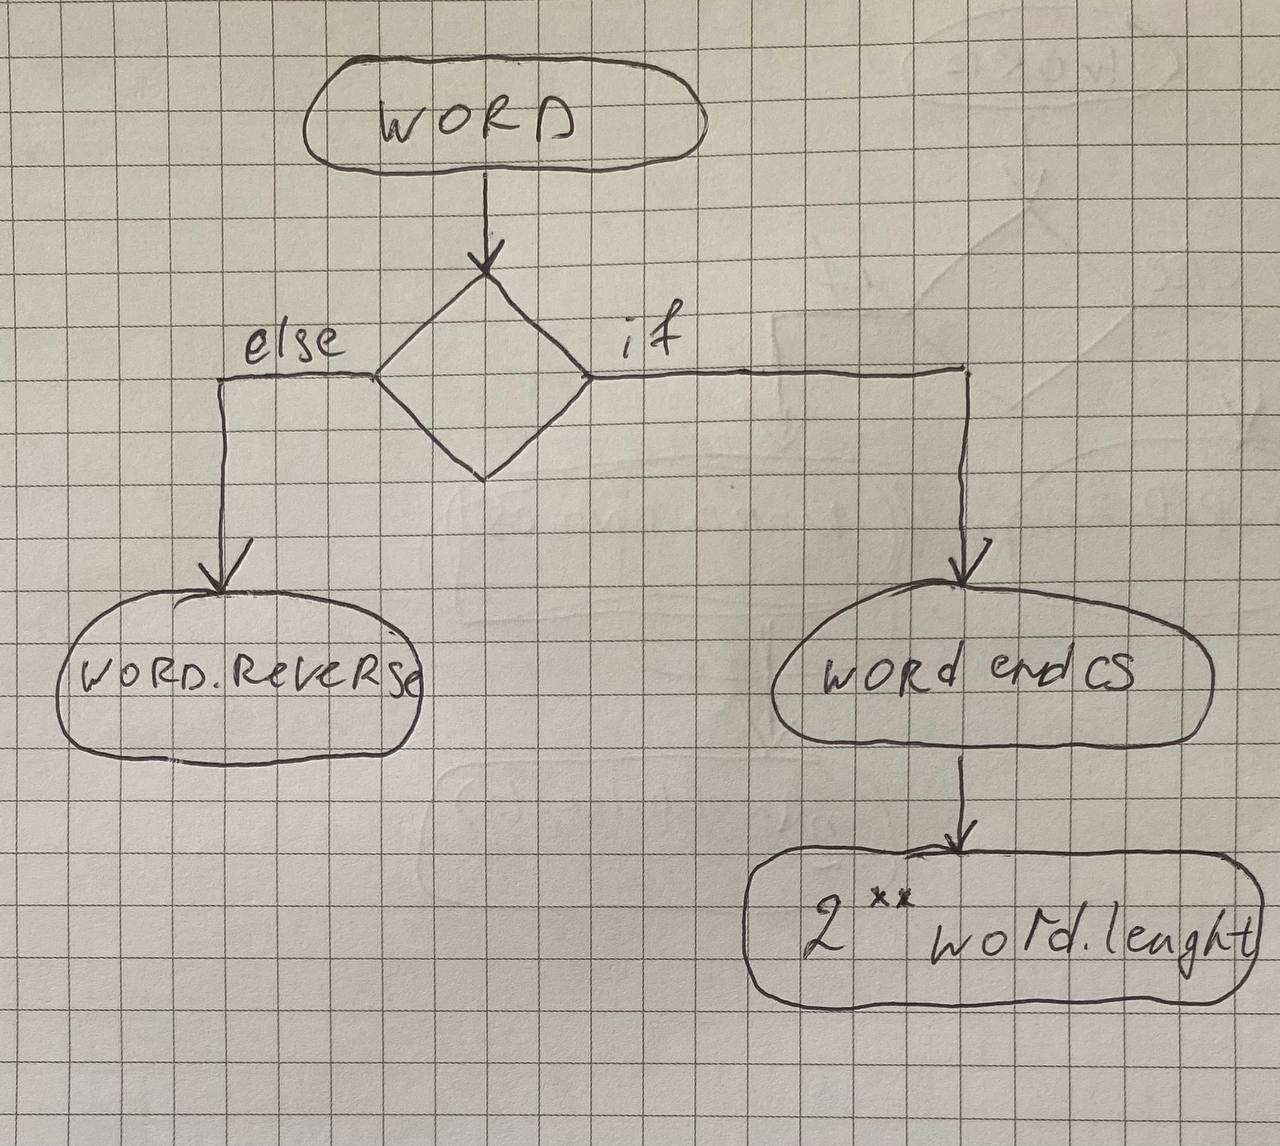 WORD
else
if
WORD.ReVeRSe
WORd end CS
2 ** word.lenght